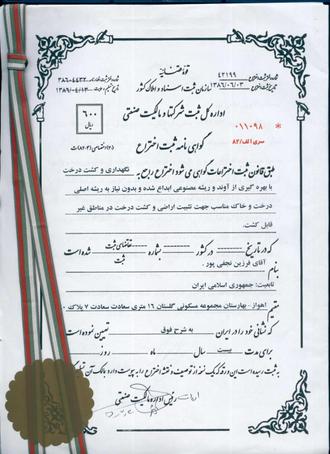 قوه قضائیه
سازمان ثبت اسناد و املاک کشور
شماره ثبت اختراع ۴۲۱۹۹
تاریخ ثبت اختراع ۱۳۸۶/۰۶/۰۳
۳۸۶۰۴۴۳۲
اداره کل ثبت شرکتها و مالکیت صنعتی
۶۰۰
ریال
گواهی نامه ثبت اختراع
* ۰۱۱۰۹۸
سری الف/۸۲
طبق قانون ثبت اختراعات گواهی می شود اختراع راجع به نگهداری و کشت درخت
با بهره گیری از آوند و ریشه مصنوعی ابداع شده و بدون نیاز به ریشه اصلی
درخت و خاک مناسب جهت تثبیت اراضی و کشت درخت در مناطق غیر
قابل کشت.
که در تاریخ -------- در کشور -------- بشماره -------- تقاضای ثبت / ثبت شده است
بنام آقای فرزین نجفی پور.
تابعیت: جمهوری اسلامی ایران
مقیم اهواز - بهارستان مجموعه مسکونی گلستان ۱۶ متری سعادت سعادت ۷ پلاک
که نشانی خود را در ایران به شرح فوق تعیین نموده است
برای مدت بیست سال -- ماه -- روز
به ثبت رسیده است این ورقه که یک نسخه از توصیف و نقشه اختراع را به پیوست دارد به مالک آن تسلیم
رئیس اداره مالکیت صنعتی